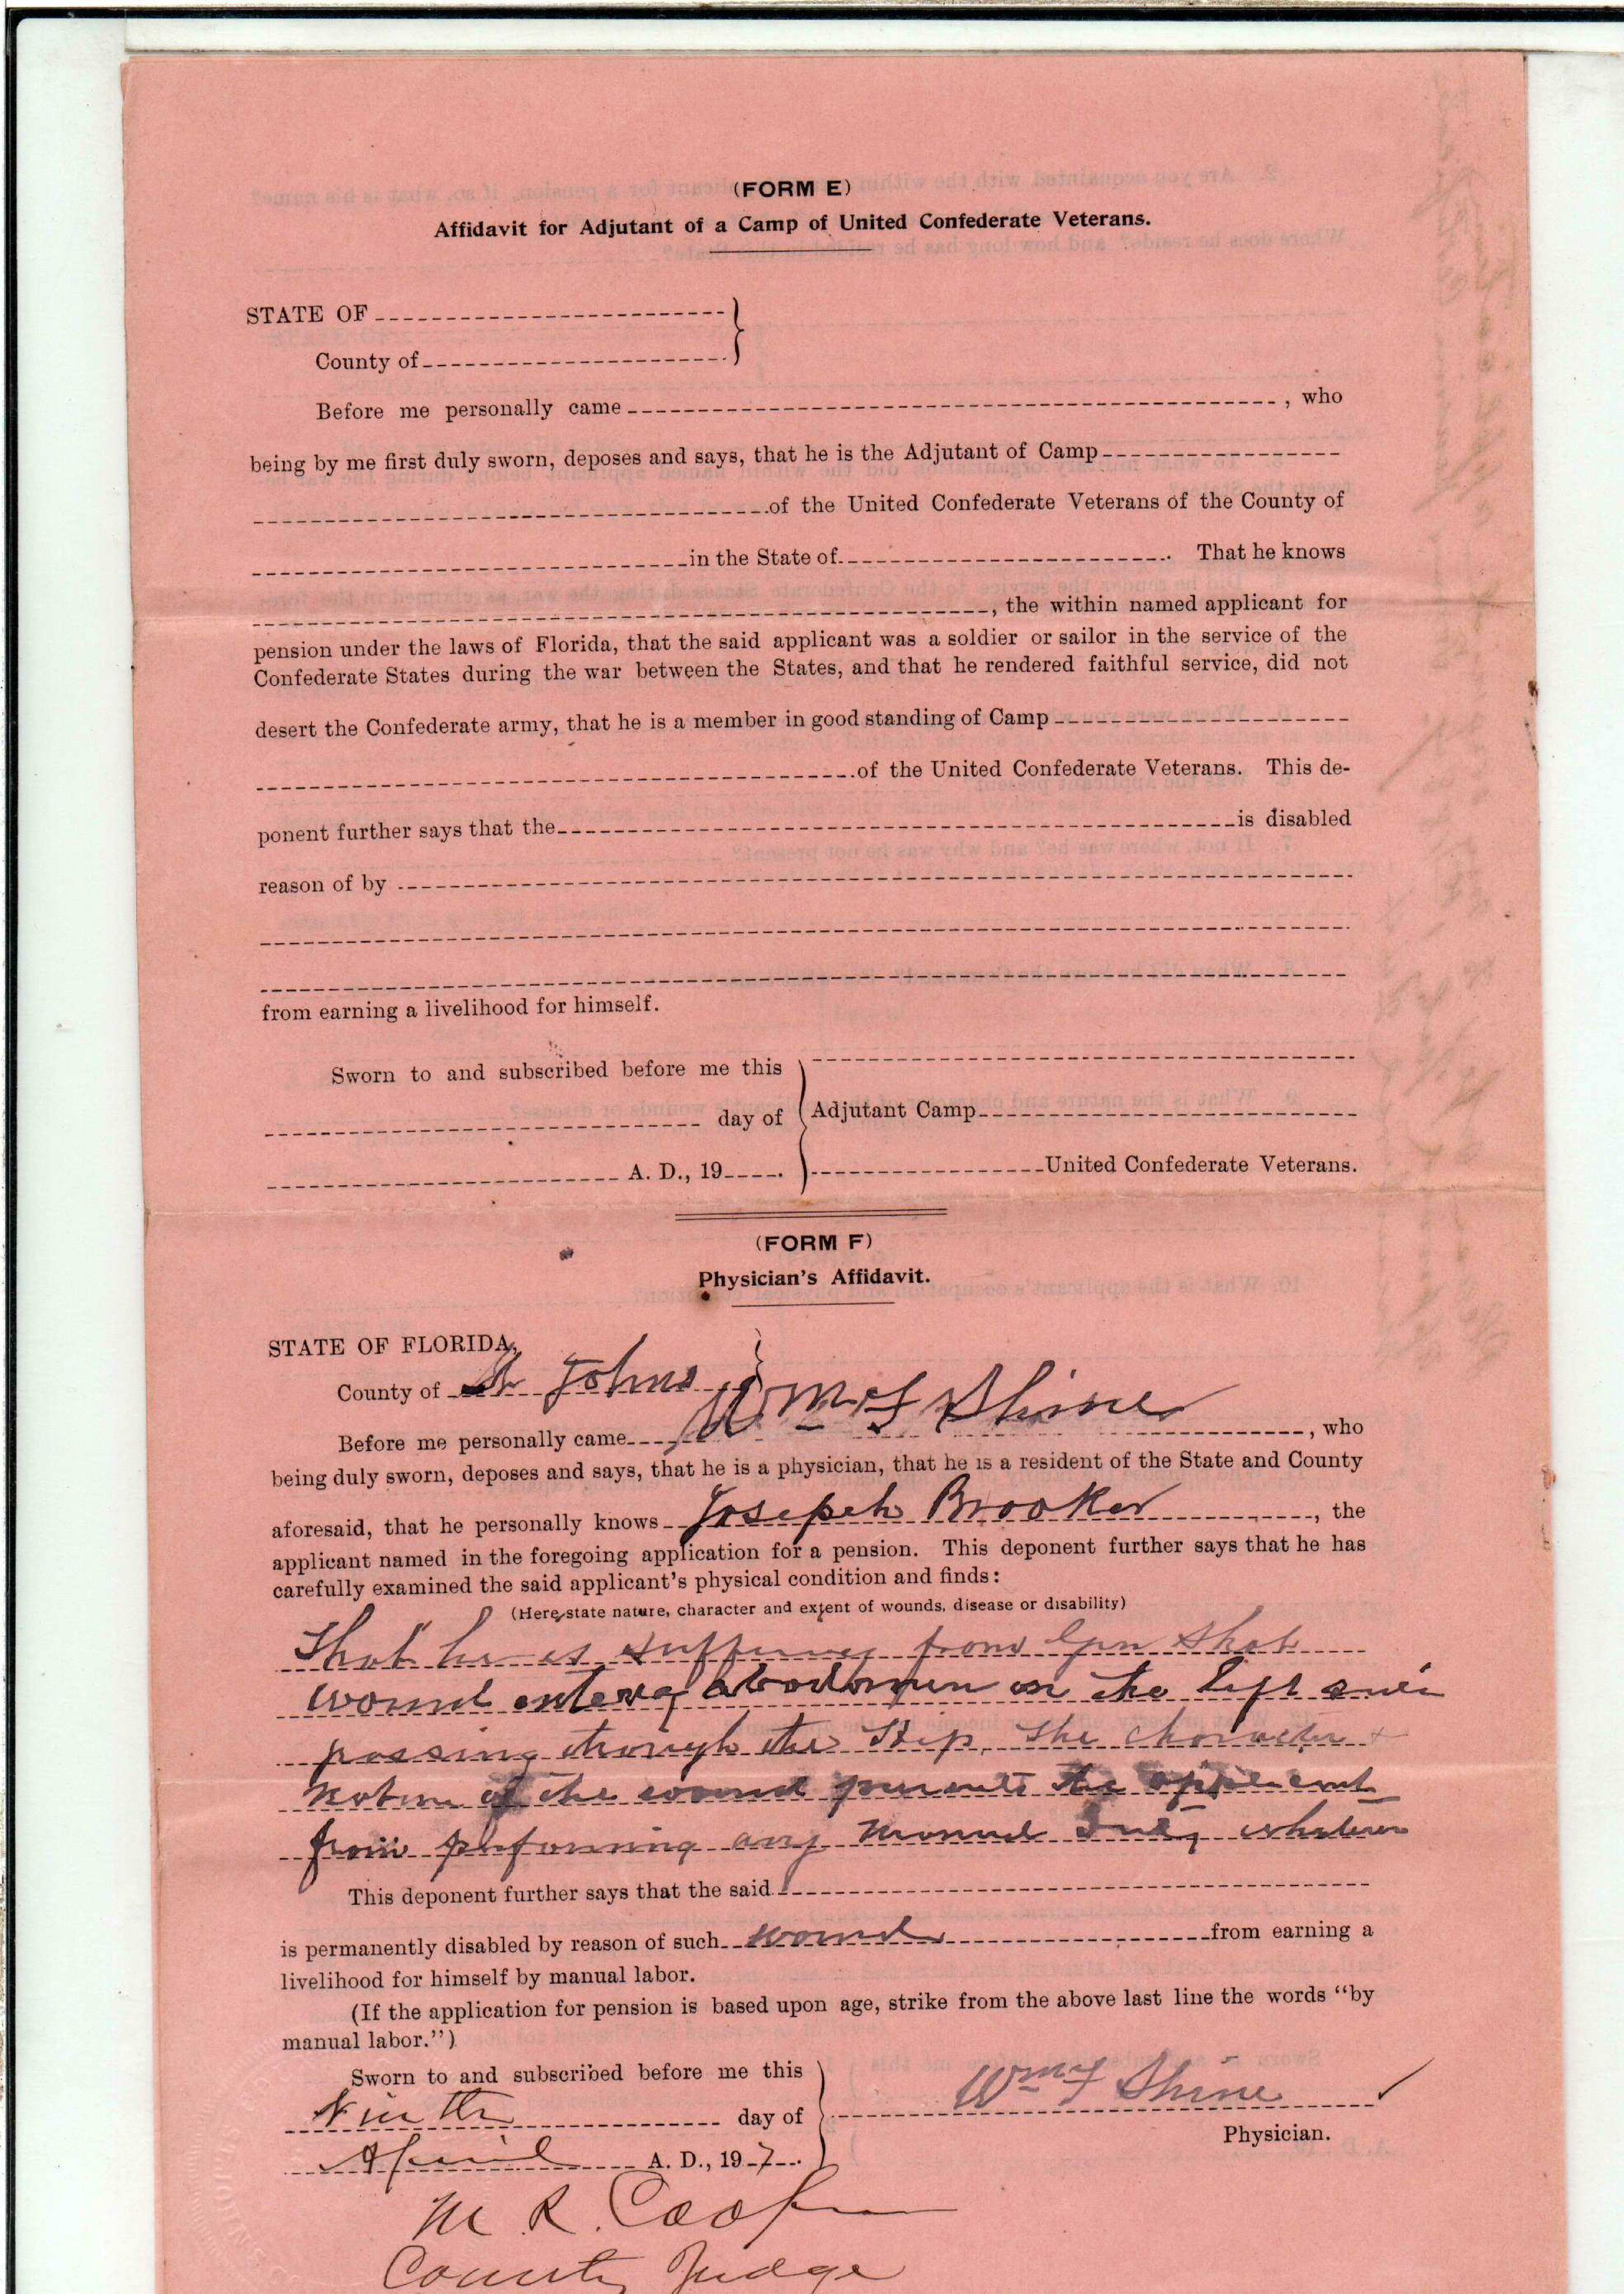 (FORM E)
Affidavit for Adjutant of a Camp of United Confederate Veterans.
STATE OF
County of
Before me personally came , who
being by me first duly sworn, deposes and says, that he is the Adjutant of Camp
of the United Confederate Veterans of the County of
in the State of . That he knows
, the within named applicant for
pension under the laws of Florida, that the said applicant was a soldier or sailor in the service of the
Confederate States during the war between the States, and that he rendered faithful service, did not
desert the Confederate army, that he is a member in good standing of Camp
of the United Confederate Veterans. This de-
ponent further says that the is disabled
reason of by
from earning a livelihood for himself.
Sworn to and subscribed before me this
day of Adjutant Camp
A. D., 19 . United Confederate Veterans.
(FORM F)
Physician's Affidavit.
STATE OF FLORIDA,
County of St Johns
Before me personally came Wm F Shine , who
being duly sworn, deposes and says, that he is a physician, that he is a resident of the State and County
aforesaid, that he personally knows Josepeh Brooker , the
applicant named in the foregoing application for a pension. This deponent further says that he has
carefully examined the said applicant's physical condition and finds:
(Here state nature, character and extent of wounds, disease or disability)
That he is suffering from Gun Shot
wound entering abodomen on the left
passing through the Hip, The character +
nature of the wound prevents the applicant
from performing any Manual Duty whatever
This deponent further says that the said
is permanently disabled by reason of such wound from earning a
livelihood for himself by manual labor.
(If the application for pension is based upon age, strike from the above last line the words "by
manual labor.")
Sworn to and subscribed before me this
Ninth day of Wm F Shine
Physician.
April A. D., 19 7
M R. Cooper
County Judge